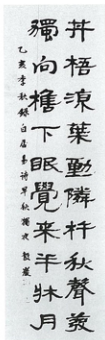 丼梧涼葉動隣杵秋聲發
獨向檐下眠覺来半牀月
乙亥季秋録白居易詩早秋獨夜